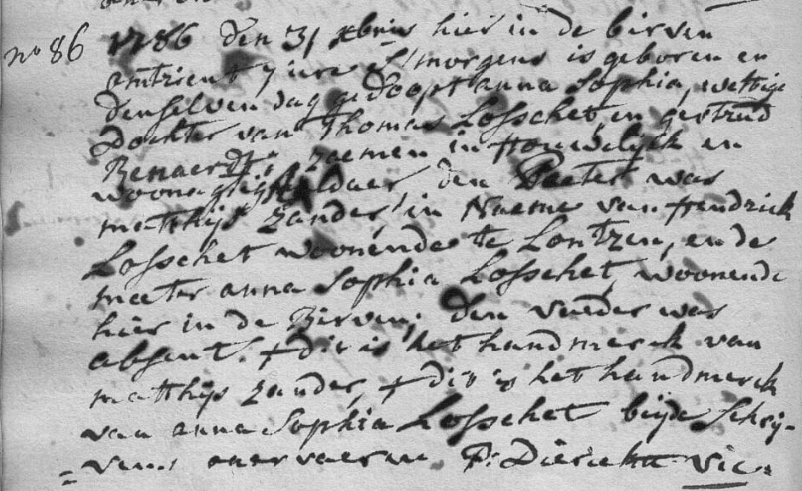 no 86 1786 den 31 xbris hier in de birven
omtrient 7 ure s'morgens is geboren en
denselven dag gedoopt anna Sophia, wettige
Dochter van Thomas Losschet, en gertrud
Benaerdts zaemen in Houwelyck en
woonagtig aldaer den Peeter was
matthijs zander, in Naeme van Hendrick
Losschet woonende te Lontzen, en de
meeter anna Sophia Losschet woonende
hier in de Birven; den vaeder was
absent. + dit is het handmerck van
matthijs zander, + dit is het handmerck
van anna Sophia Losschet beyde schry-
vens onervaeren P: Diericken vic: